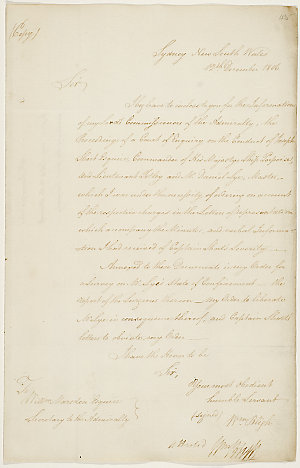 (Copy)
Sydney New South Wales
12th December 1806
Sir,
I beg leave to inclose to you for the information
of my Lords Commissioners of the Admiralty, the
Proceedings of a Court of Enquiry on the Conduct of Joseph
Short Esquire Commander of His Majesty's Ship Porpoise
and Lieutenant Tetley and Mr Daniel Lye, Master
which I was under the necessity of ordering on account
of the respective charges in the Letters of representation
which accompany the Minutes, and verbal Informa-
tion I had received of Captain Short's severity.
Annexed to these Documents is my Order for
a Survey on Mr Lye's State of Confinement — the
report of the Surgeons thereon — my Order to liberate
Mr Lye in consequence thereof, and Captain Short's
letters to my Order.
I have the honor to be
Sir,
Your most obedient
humble Servant
(Signed) Wm Bligh
To
William Marsden Esquire
Secretary to the Admiralty
Wm Bligh